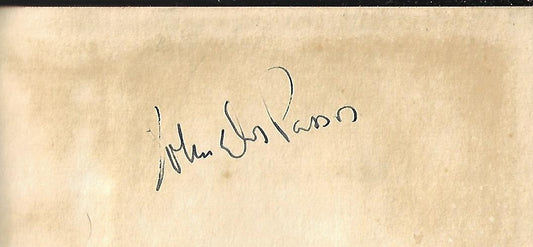 John Dos Passos